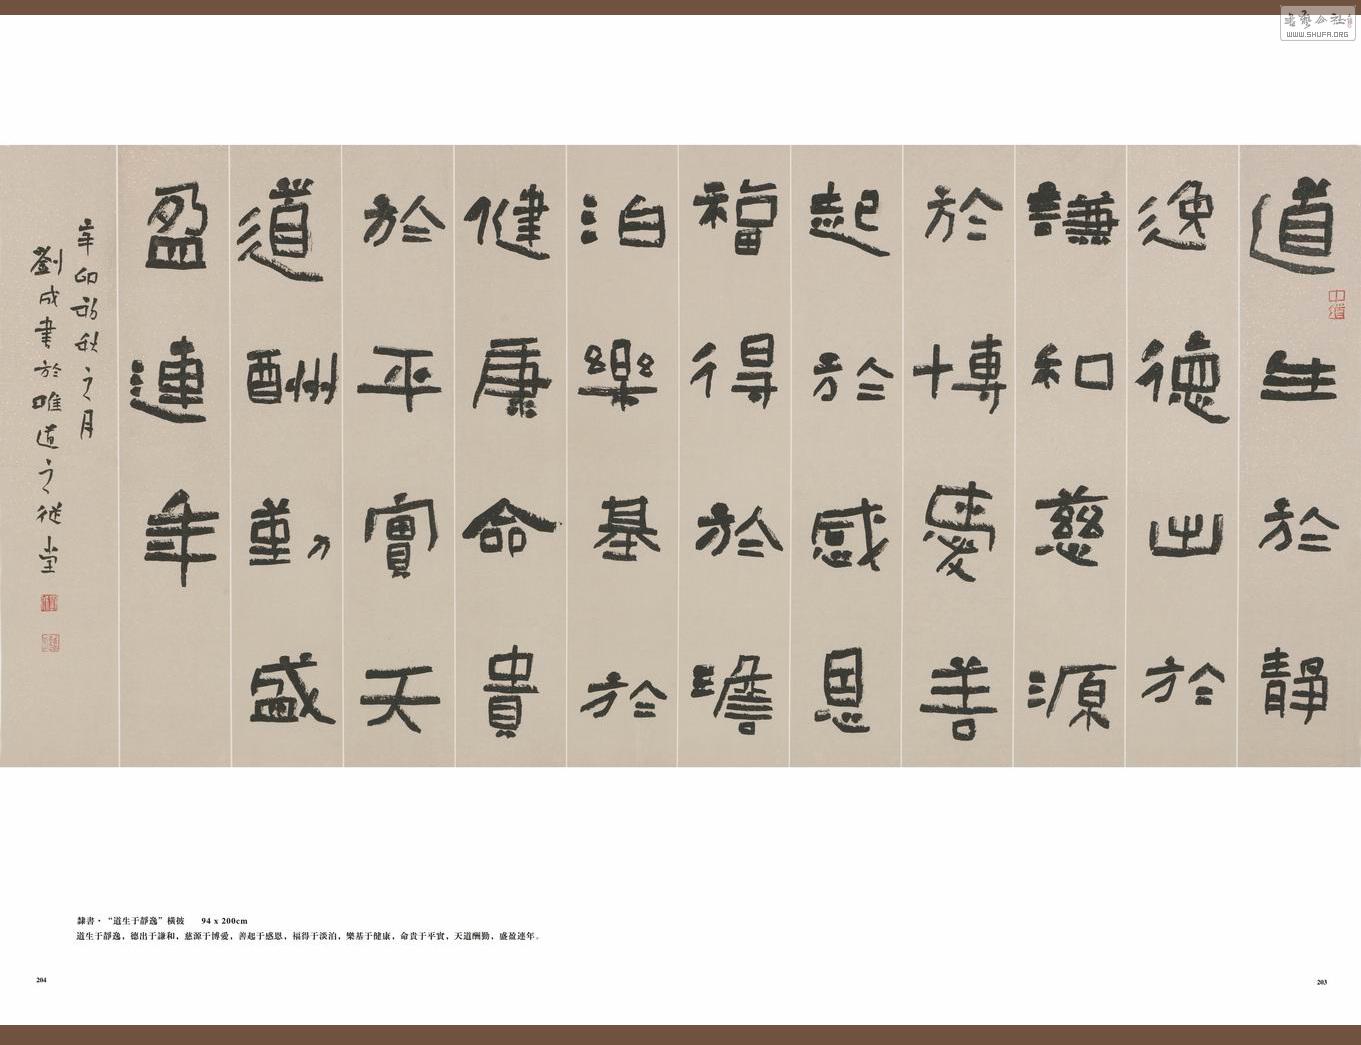 道生於靜
逸德出於
謙和慈源
於博愛善
起於感恩
福得於澹
泊樂基於
健康命貴
於平實天
道酬勤盛
盈連年
辛卯初秋之月
劉成書於唯道之從堂
中道
隸書·“道生于靜逸”橫披 94 x 200cm
道生于靜逸，德出于謙和，慈源于博愛，善起于感恩，福得于淡泊，樂基于健康，命貴于平實，天道酬勤，盛盈連年。
204
203
WWW.SHUFA.ORG